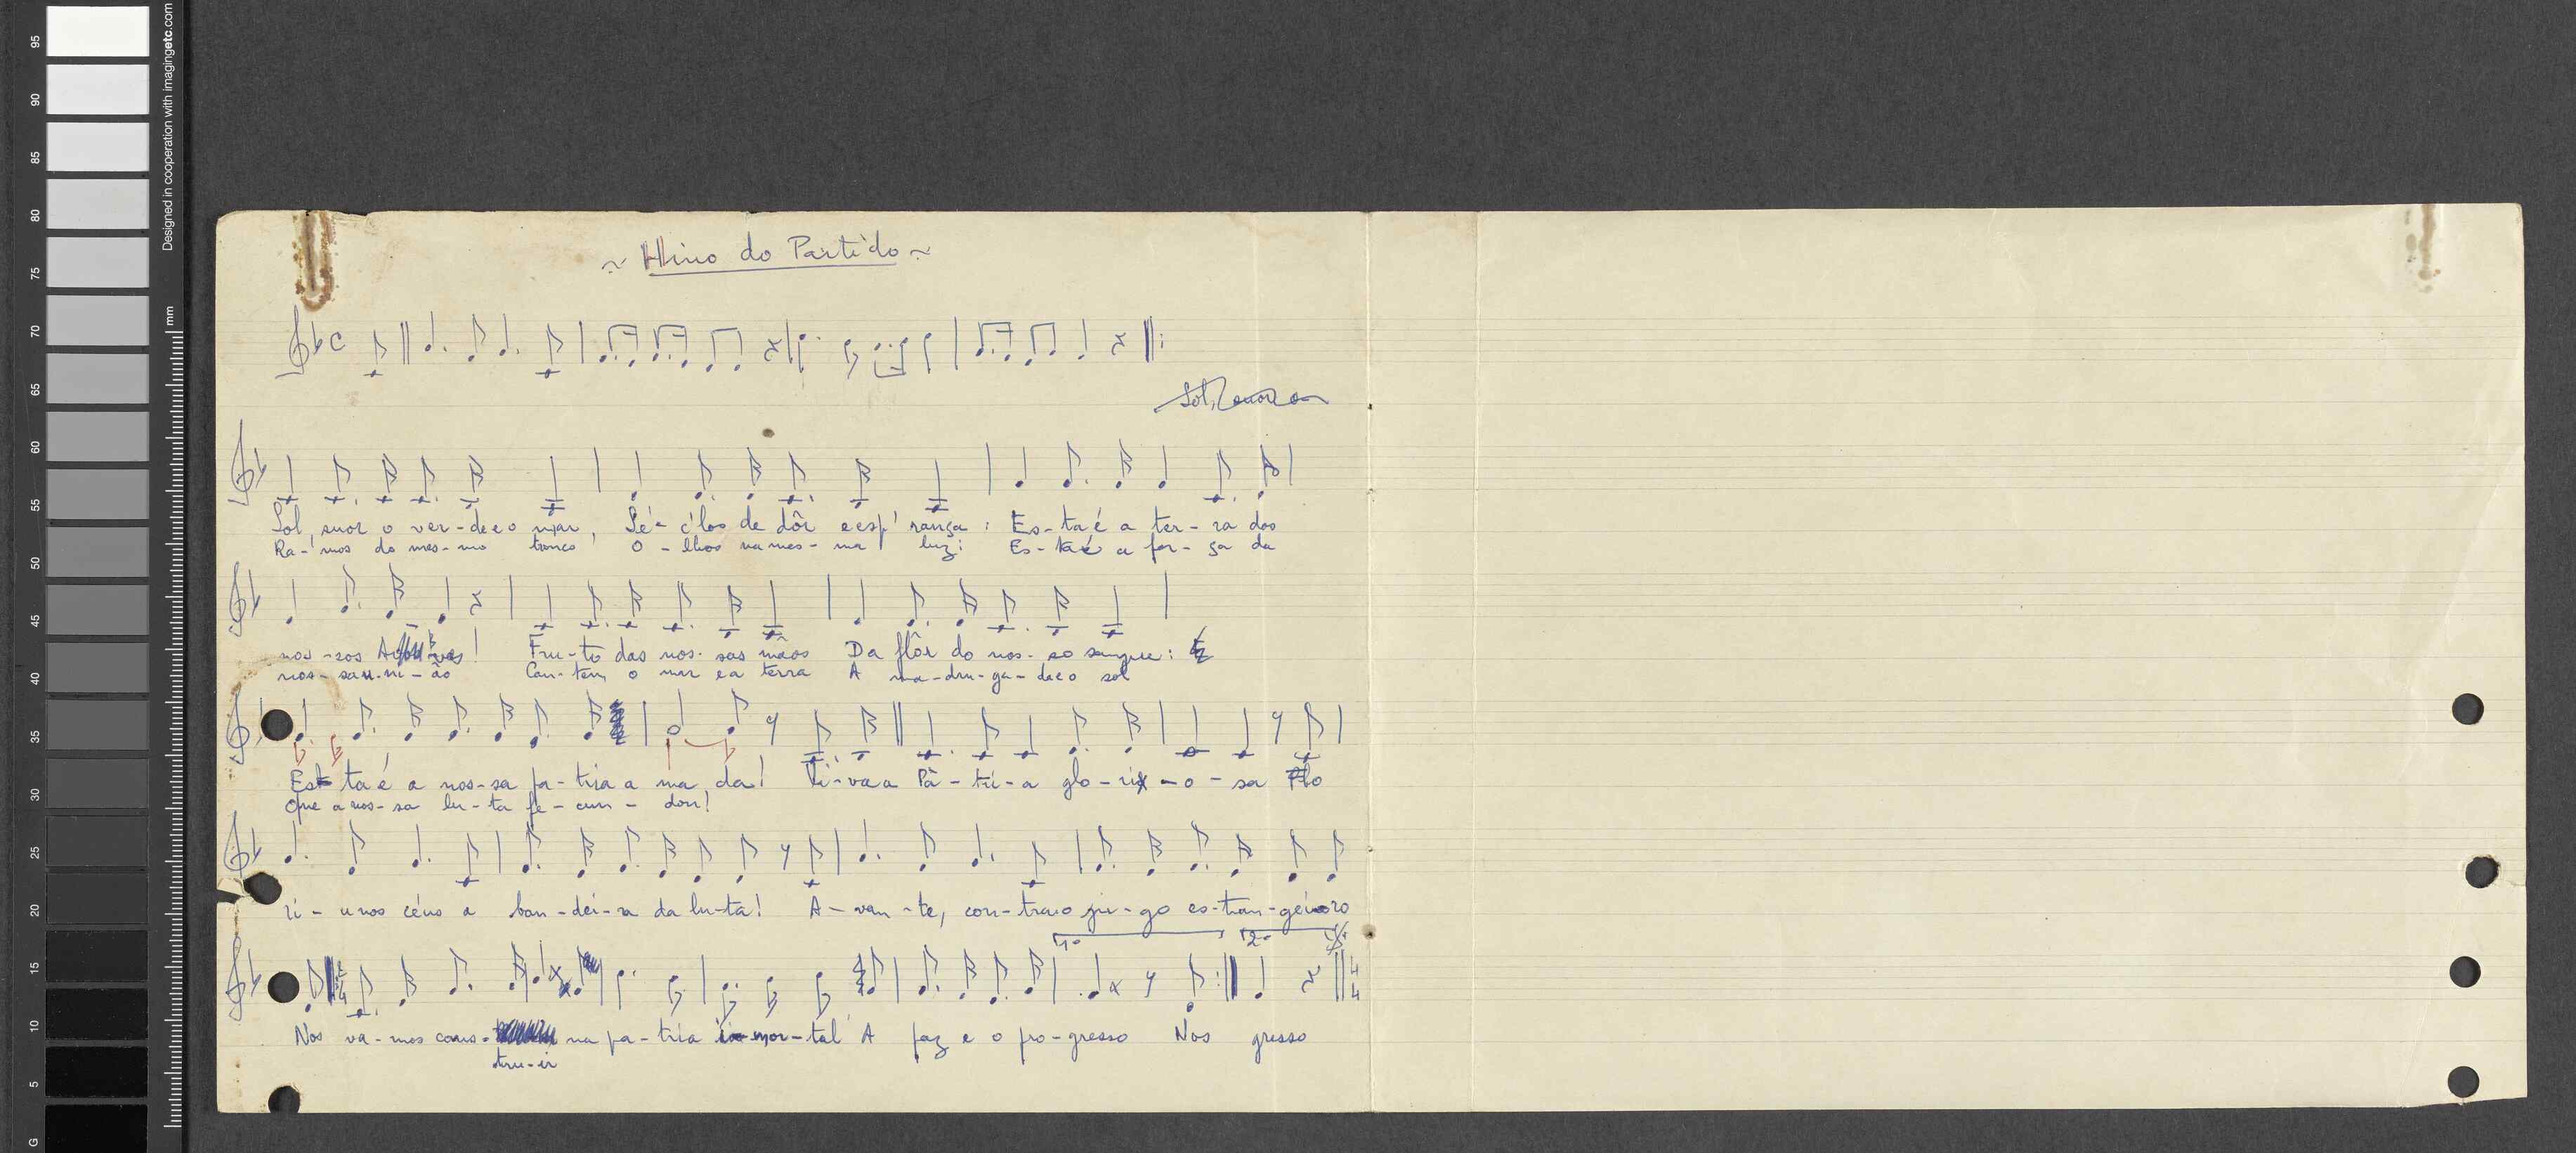 ~ Hino do Partido ~
Sol, suor o ver-de e o mar, Sé-c'los de dôr e esp'rança: Es-ta é a ter-ra dos
Ra-mos do mes-mo tronco O-lhos na mes-ma luz: Es-ta é a for-ça da
nos-sos Avós! Fru-to das nos-sas mãos Da flôr do nos-so sangue:
nos-sa u-ni-ão Can-tem o mar e a terra A ma-dru-ga-da e o sol
Es-ta é a nos-sa pa-tria a ma da! Vi-va a Pà-tri-a glo-ri-o-sa Flo
Que a nos-sa lu-ta fe-cun-dou!
ri-u nos céus a ban-dei-ra da lu-ta! A-van-te, con-tra o ju-go es-tran-geiro
1º 2º
Nos va-mos cons- na pa-tria i-mor-tal A paz e o pro-gresso Nos gresso
tru-ir
95
90
85
80
75
70
65
60
55
50
45
40
35
30
25
20
15
10
5
G
mm
Designed in cooperation with imagingetc.com